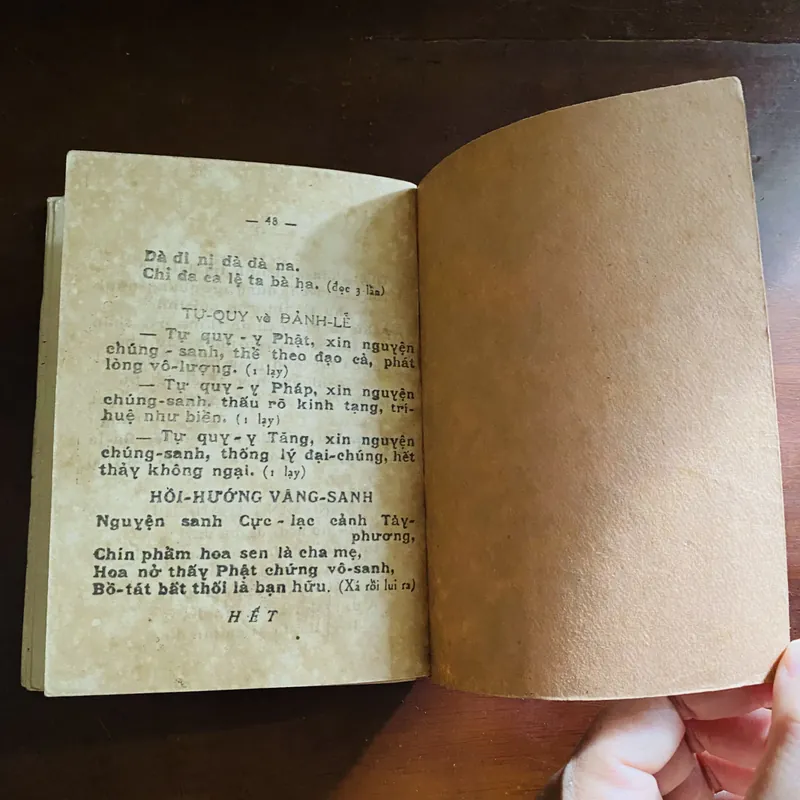 — 48 —
Dà đi nị đà dà na.
Chỉ đa ca lệ ta bà ha. (đọc 3 lần)
TỰ-QUY và ĐẢNH-LỄ
— Tự quy-y Phật, xin nguyện
chúng-sanh, thể theo đạo cả, phát
lòng vô-lượng. (1 lạy)
— Tự quy-y Pháp, xin nguyện
chúng-sanh. thấu rõ kinh tạng, trí-
huệ như biển. (1 lạy)
— Tự quy-y Tăng, xin nguyện
chúng-sanh, thống lý đại-chúng, hết
thảy không ngại. (1 lạy)
HỒI-HƯỚNG VÃNG-SANH
Nguyện sanh Cực-lạc cảnh Tây-
phương,
Chín phẩm hoa sen là cha mẹ,
Hoa nở thấy Phật chứng vô-sanh,
Bồ-tát bất thối là bạn hữu. (Xá rồi lui ra)
HẾT